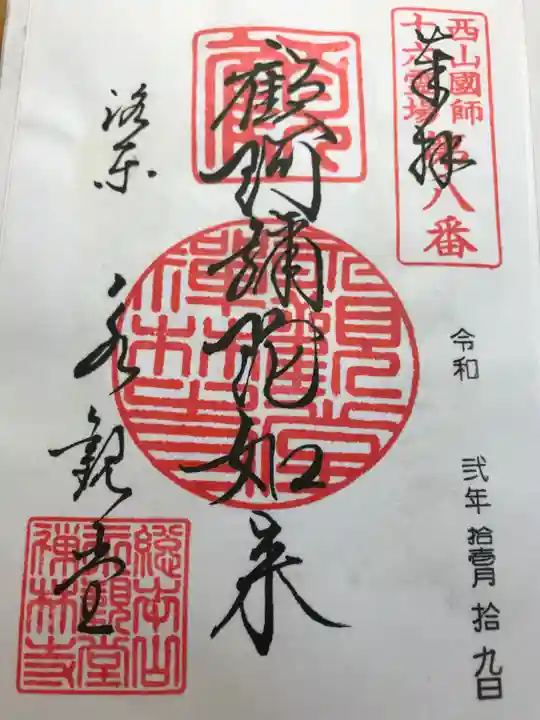 西山國師
十六霊場第八番
奉拝
令和 弐年 拾壱月 拾九日
顧阿彌陀如来
洛東 永観堂
永観堂
禅林寺
総本山
永観堂
禅林寺